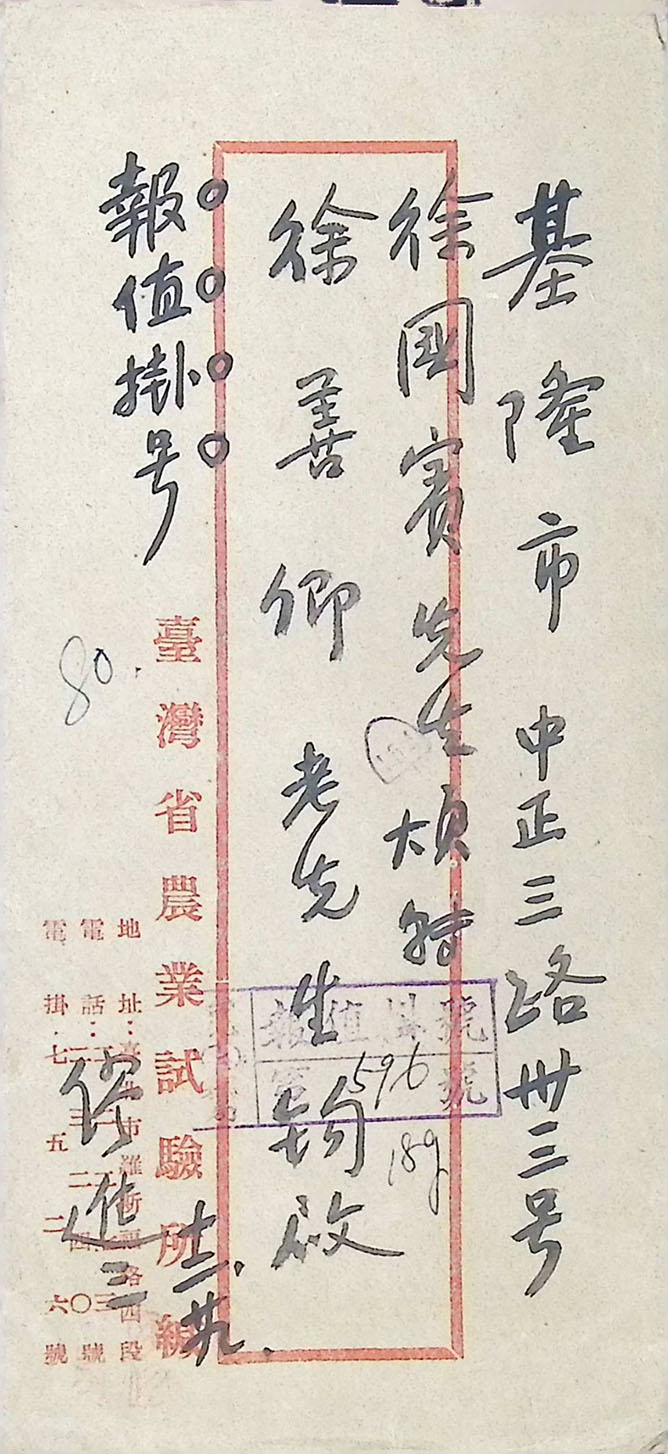 基隆市中正三路卅三号
徐國賓先生煩轉
徐善卿老先生鈞啟
報值掛号
80.
報值掛號
第596號
189
臺灣省農業試驗所緘
徐進三
十二.廿九.
地址:臺北市羅斯福路四段
電話:
電掛.七五二六號